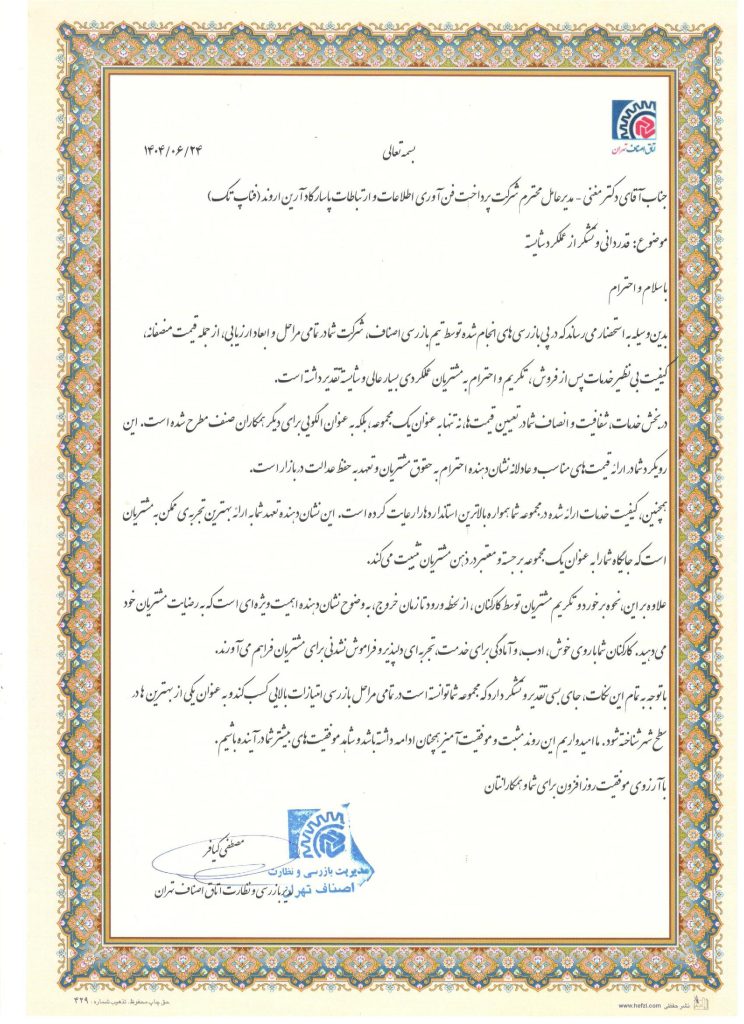 اتاق اصناف تهران
بسمه تعالی
۱۴۰۴/۰۶/۲۴
جناب آقای دکتر مغنی - مدیرعامل محترم شرکت پرداخت فن آوری اطلاعات و ارتباطات پاسارگاد آرین اروند (فناپ تک)
موضوع: قدردانی و تشکر از عملکرد شایسته
با سلام و احترام
بدین وسیله به استحضار می رساند که در پی بازرسی های انجام شده توسط تیم بازرسی اصناف، شرکت شما در تمامی مراحل و ابعاد ارزیابی، از جمله قیمت منصفانه،
کیفیت بی نظیر خدمات پس از فروش، تکریم و احترام به مشتریان عملکردی بسیار عالی و شایسته تقدیر داشته است.
در بخش خدمات، شفافیت و انصاف شما در تعیین قیمت ها، نه تنها به عنوان یک مجموعه، بلکه به عنوان الگویی برای دیگر همکاران صنف مطرح شده است. این
رویکرد شما در ارائه قیمت های مناسب و عادلانه نشان دهنده احترام به حقوق مشتریان و تعهد به حفظ عدالت در بازار است.
همچنین، کیفیت خدمات ارائه شده در مجموعه شما همواره بالاترین استانداردها را رعایت کرده است. این نشان دهنده تعهد شما به ارائه بهترین تجربه ی ممکن به مشتریان
است که جایگاه شما را به عنوان یک مجموعه برجسته و معتبر در ذهن مشتریان تثبیت می کند.
علاوه بر این، نحوه برخورد و تکریم مشتریان توسط کارکنان، از لحظه ورود تا زمان خروج، به وضوح نشان دهنده اهمیت ویژه ای است که به رضایت مشتریان خود
می دهید. کارکنان شما با روی خوش، ادب، و آمادگی برای خدمت، تجربه ای دلپذیر و فراموش نشدنی برای مشتریان فراهم می آورند.
با توجه به تمام این نکات، جای بسی تقدیر و تشکر دارد که مجموعه شما توانسته است در تمامی مراحل بازرسی امتیازات بالایی کسب کند و به عنوان یکی از بهترین ها در
سطح شهر شناخته شود. ما امیدواریم این روند مثبت و موفقیت آمیز همچنان ادامه داشته باشد و شاهد موفقیت های بیشتر شما در آینده باشیم.
با آرزوی موفقیت روز افزون برای شما و همکارانتان
مصطفی کیافر
مدیریت بازرسی و نظارت
اصناف تهران
مدیر بازرسی و نظارت اتاق اصناف تهران
حق چاپ محفوظ. تذهیب شماره: ۴۲۹
نشر حفظی www.hefzi.com